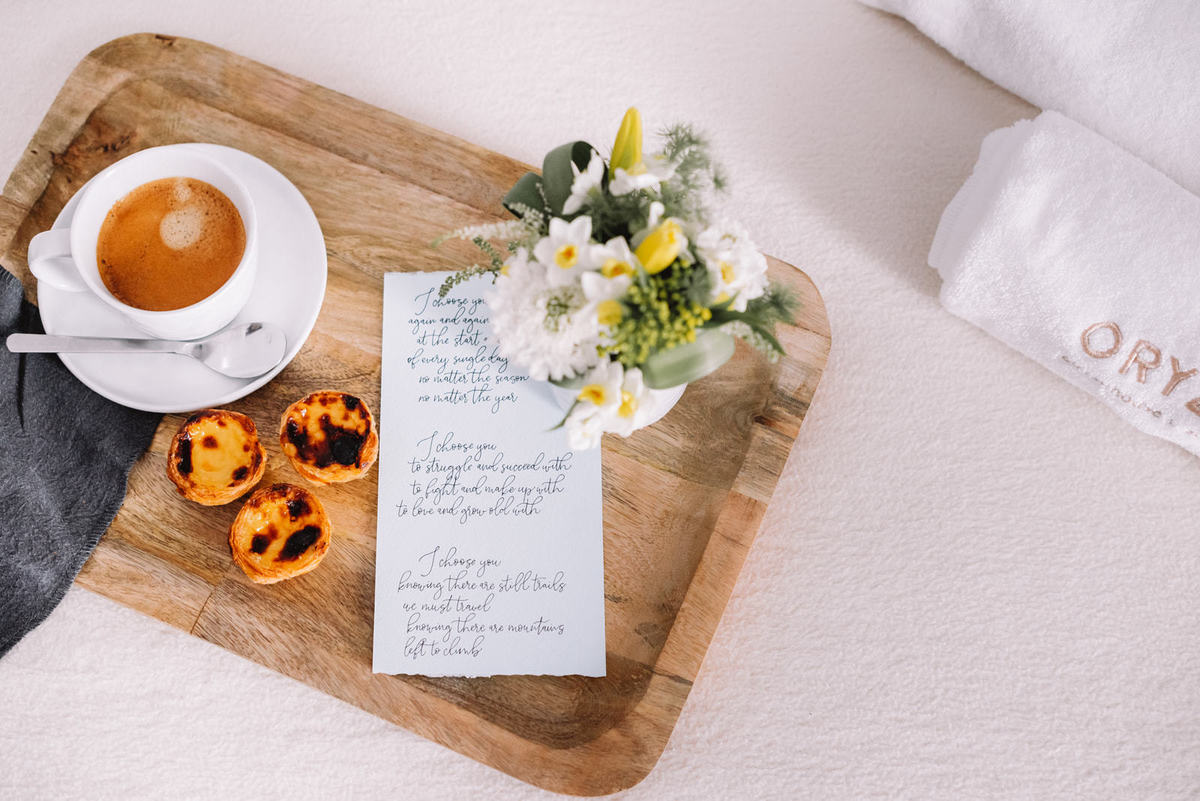 I choose you
again and again
at the start
of every single day
no matter the season
no matter the year
I choose you
to struggle and succeed with
to fight and make up with
to love and grow old with
I choose you
knowing there are still trails
we must travel
knowing there are mountains
left to climb
ORYZ
house